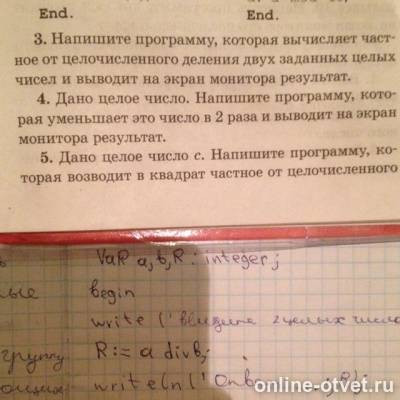 End. End.
3. Напишите программу, которая вычисляет част-
ное от целочисленного деления двух заданных целых
чисел и выводит на экран монитора результат.
4. Дано целое число. Напишите программу, кото-
рая уменьшает это число в 2 раза и выводит на экран
монитора результат.
5. Дано целое число c. Напишите программу, ко-
торая возводит в квадрат частное от целочисленного
VaR a,b,R: integer;
begin
write ('введите 2 целых числа
группу R:= a div b;
writeln ('
online-otvet.ru